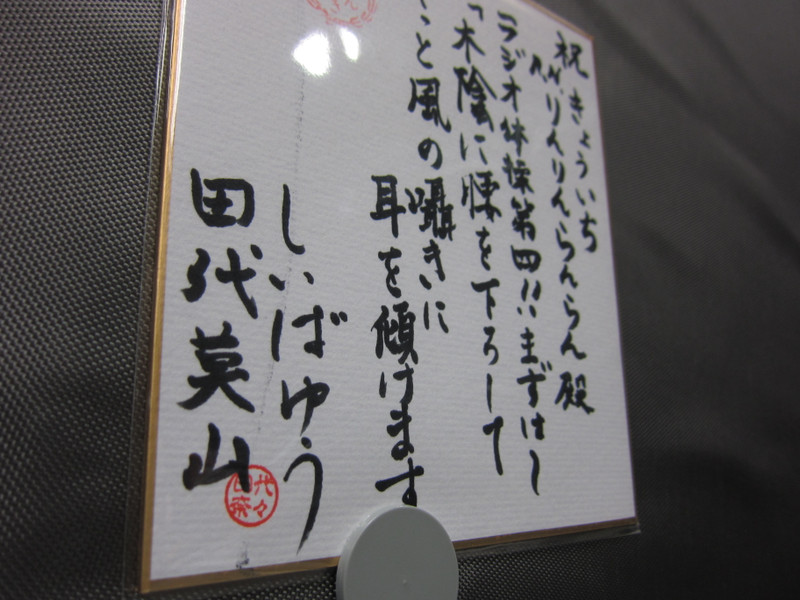 祝 きょういち
りんりんらんらん殿
ラジオ体操第四!!まずは
「木陰に腰を下ろして
と風の囁きに
耳を傾けます
しいばゆう
田代英山